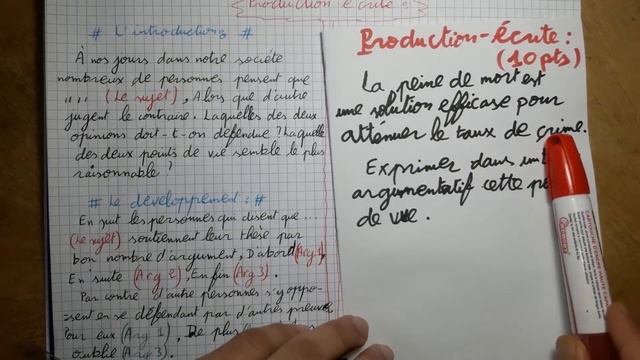 Production écrite
# L'introduction # 
À nos jours dans notre sociéte
nombreux de personnes pensent que
" " (Le sujet), Alors que d'autre
jugent le contraire. Laquelles des deux
opinions doit-t-on défendue ? Laquelle
des deux points de vue semble le plus
raisonnable ?
# Le développement : #
En suit les personnes qui disent que ...
(Le sujet) soutiennent leur thèse par
bon nombre d'argument, D'abord (Arg 1),
En suite (Arg 2), En fin (Arg 3).
Par contre d'autre personnes s'y oppo-
sent en se défendant par d'autres preuves
Pour eux (Arg 1), De plus
oublié (Arg 3).
Production-écrite :
(10pts)
La peine de mort est
une solution efficase pour
attenuer le taux de crime.
Exprimer dans un
argumentatif cette
de vue.